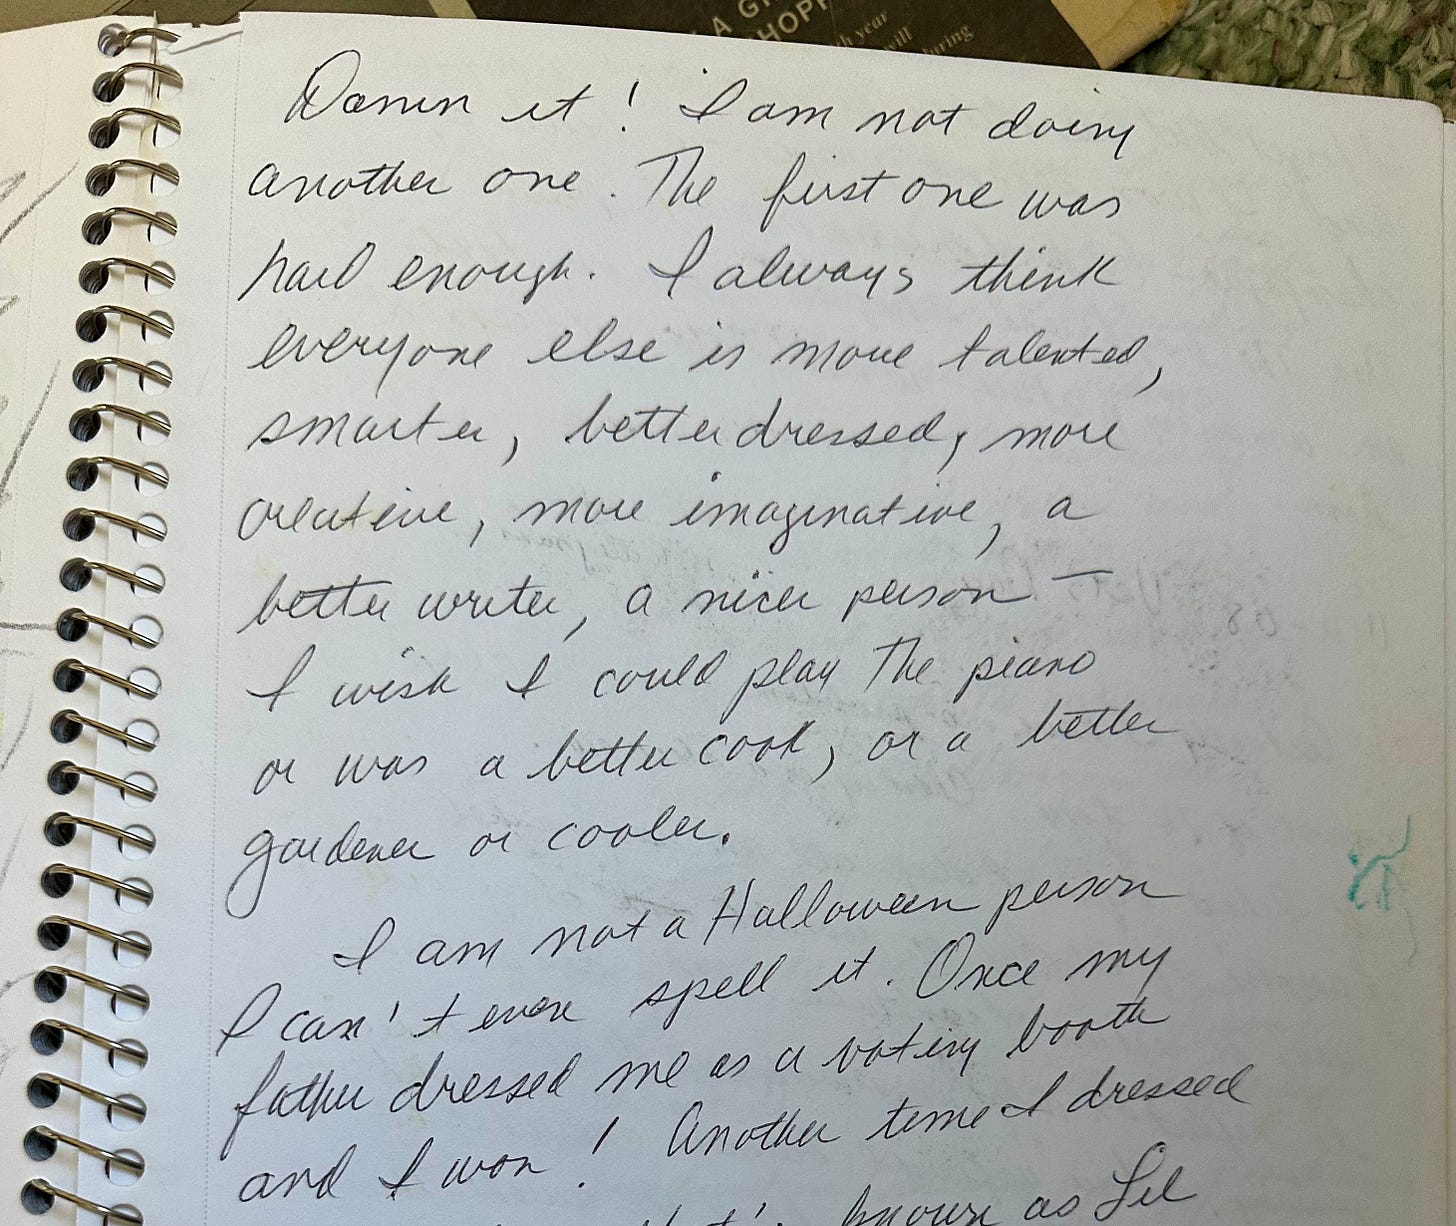 A G
SHOPP
th year
will
during
Damn it! I am not doing
another one. The first one was
hard enough. I always think
everyone else is more talented,
smarter, better dressed, more
creative, more imaginative, a
better writer, a nicer person —
I wish I could play the piano
or was a better cook, or a better
gardener or cooler.
I am not a Halloween person
I can't even spell it. Once my
father dressed me as a voting booth
and I won! Another time I dressed
known as Lil